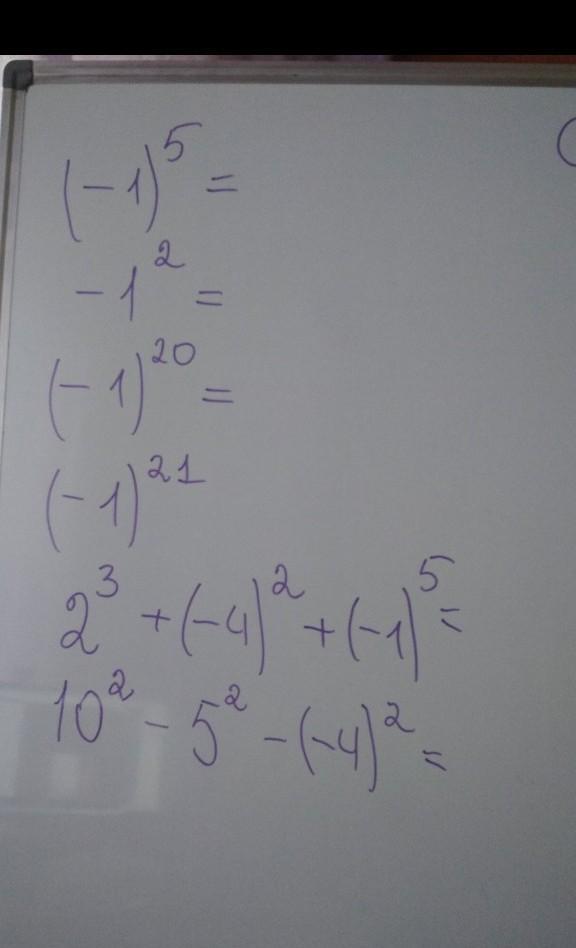 (-1)⁵ =
-1² =
(-1)²⁰ =
(-1)²¹
2³ + (-4)² + (-1)⁵ =
10² - 5² - (-4)² =